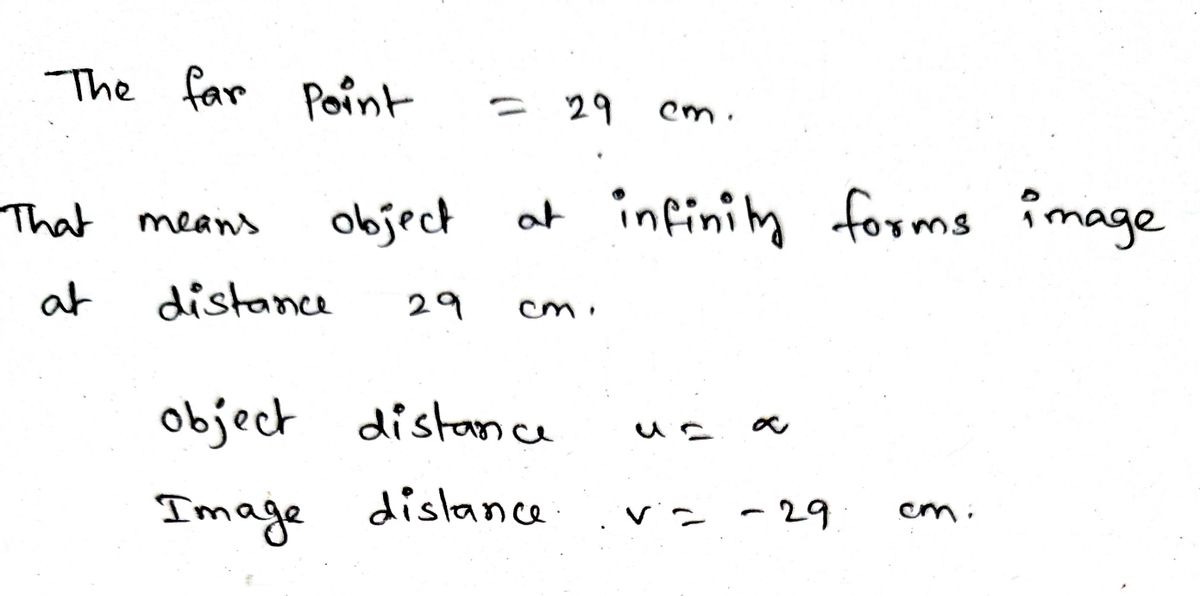 The far Point = 29 cm.
That means object at infinity forms image
at distance 29 cm.
object distance u = ∝
Image distance v = -29 cm.